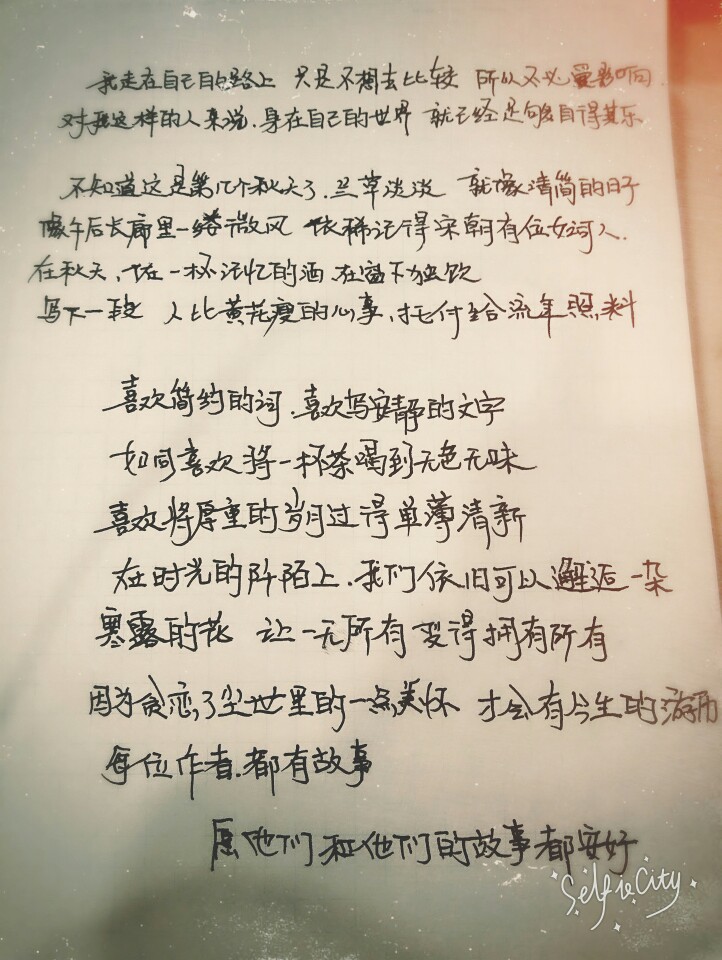 我走在自己的路上 只是不想去比较 所以不必受影响
对我这样的人来说.身在自己的世界 就已经足够自得其乐
不知道这是第几个秋天了.兰草淡淡 就像清简的日子
像午后长廊里一绻微风 依稀记得宋朝有位女词人.
在秋天.在一杯记忆的酒.在窗下独饮
写下一段 人比黄花瘦的心事.托付给流年照料
喜欢简约的词.喜欢写安静的文字
如同喜欢将一杯茶喝到无色无味
喜欢将厚重的岁月过得单薄清新
在时光的阡陌上.我们依旧可以邂逅一朵
寒露的花 让一无所有变得拥有所有
因为贪恋了尘世里的一点美怀 才会有今生的游历
每位作者.都有故事
愿他们和他们的故事都安好
Selfie City